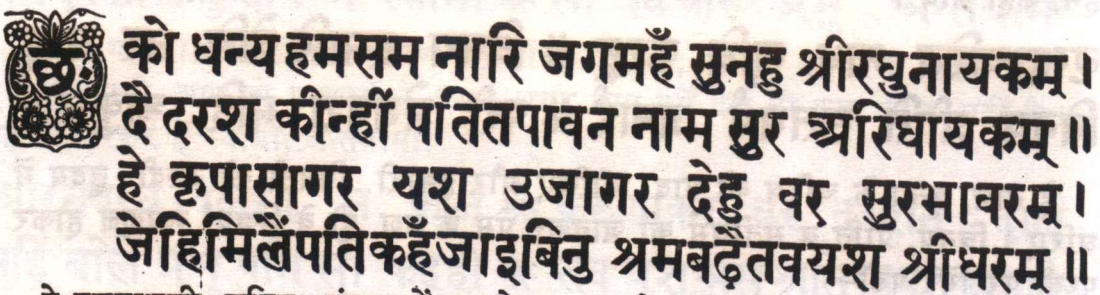 छं. को धन्य हम सम नारि जगमहँ सुनहु श्रीरघुनायकम् ।
दै दरश कीन्हीं पतितपावन नाम सुर अरिघायकम् ॥
हे कृपासागर यश उजागर देहु वर सुरभावरम् ।
जेहिमिलैंपतिकहँजाइबिनु श्रमबढ़ैतवयश श्रीधरम् ॥